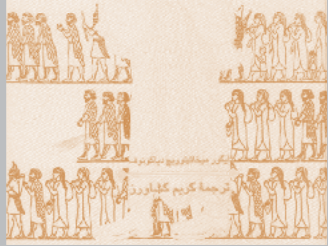 ایگور میخائیلوویچ دیاکونوف
ترجمهٔ کریم کشاورز